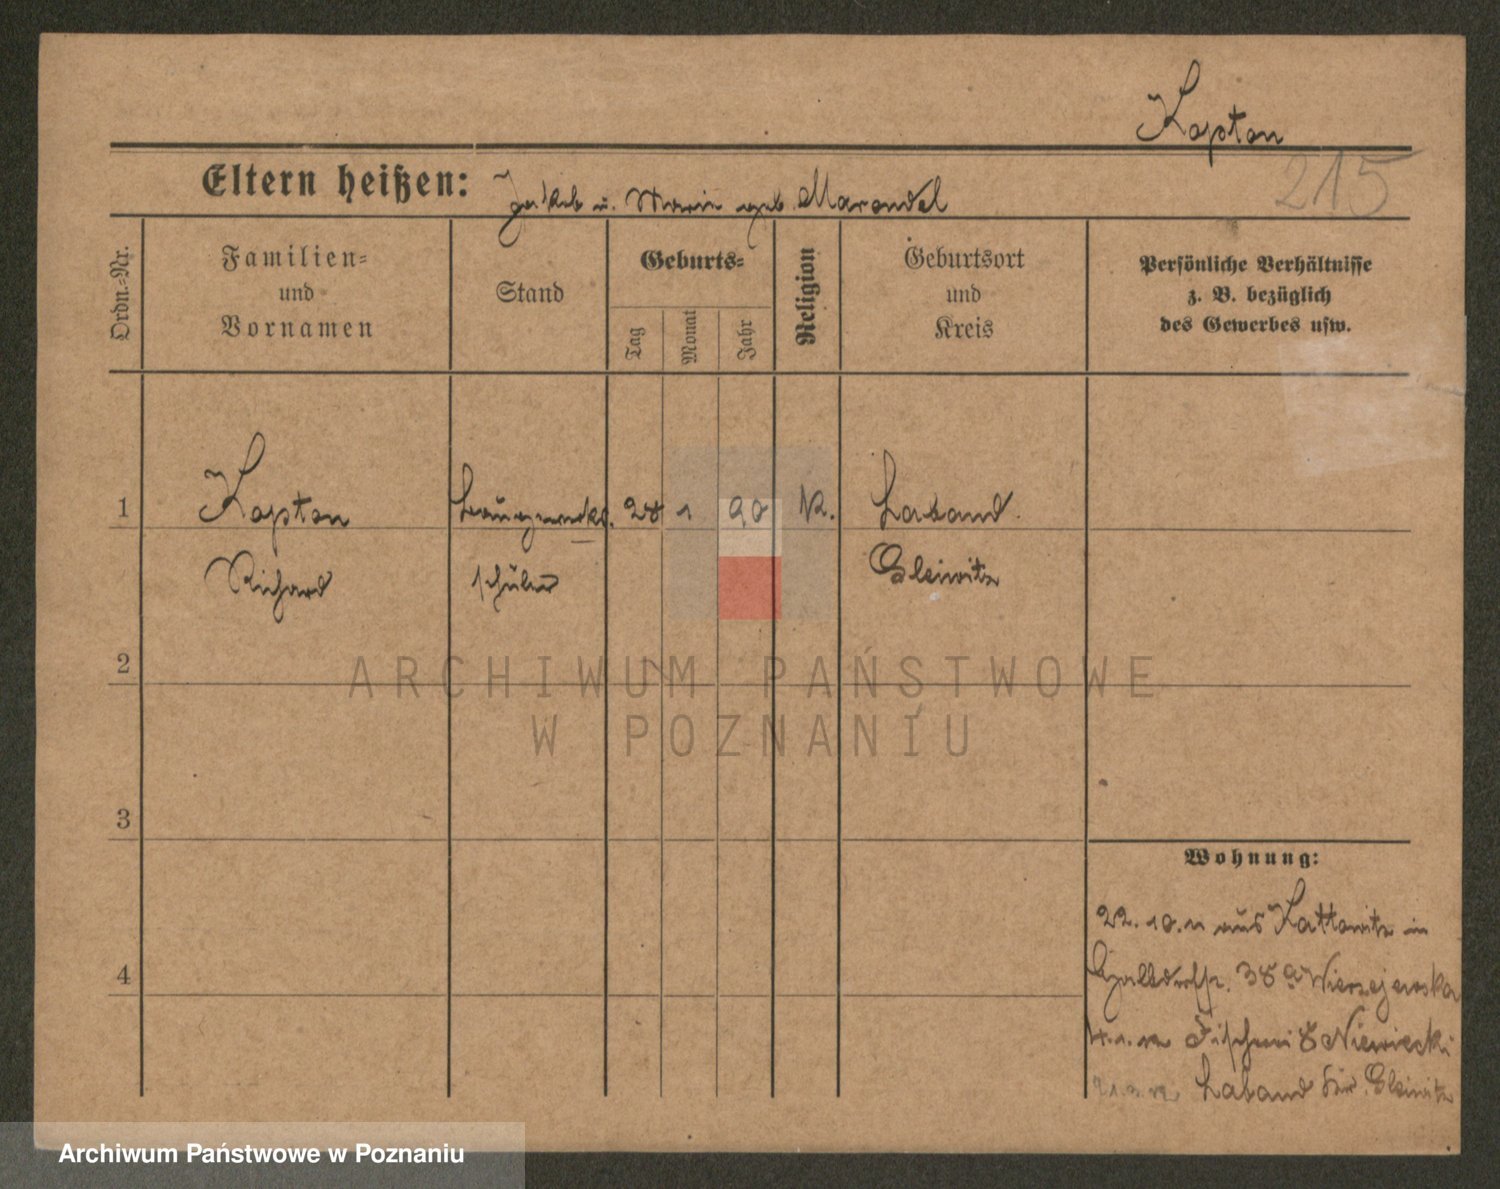 Kapton
215
Eltern heißen: Jakob u. Marie geb. Marondel
Ordn.-Nr.
Familien-
und
Vornamen
Stand
Geburts-
Tag
Monat
Jahr
Religion
Geburtsort
und
Kreis
Persönliche Verhältnisse
z. B. bezüglich
des Gewerbes usw.
1 Kapton 28 1 90 K. Laband
Richard schüler Gleiwitz
2
3
4
Wohnung:
22. 10. 11 aus Kattowitz in
38 a Wierzejewska
4. 1. 12 Fischerei 8 Niewiecki
21. 3. 12 Laband Kr. Gleiwitz
ARCHIWUM PAŃSTWOWE
W POZNANIU
Archiwum Państwowe w Poznaniu